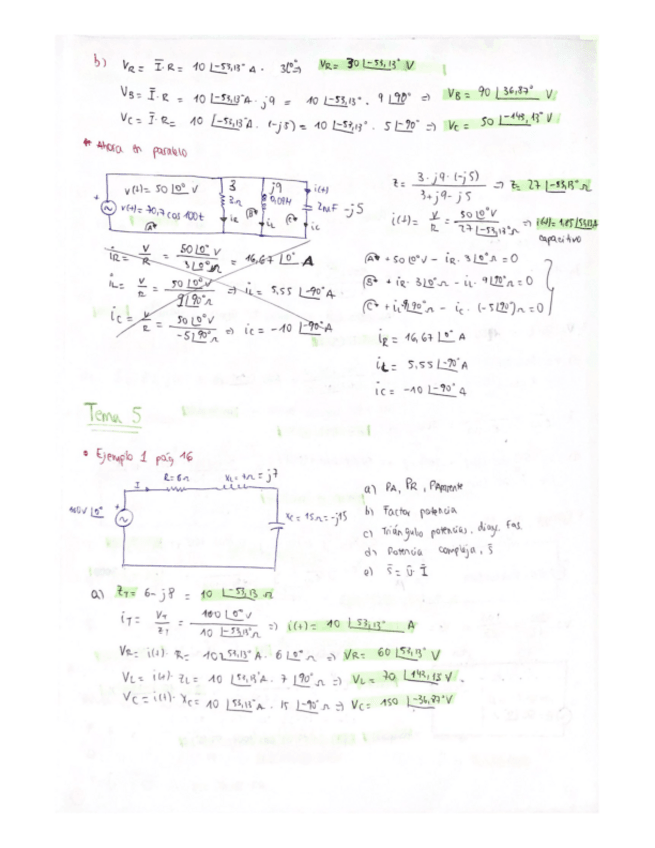 b) VR = Ī·R = 10 ∟-53,13° A · 3∟0° ⇒ VR = 30 ∟-53,13° V
VB = Ī·R = 10 ∟-53,13° A · j9 = 10 ∟-53,13° · 9 ∟90° ⇒ VB = 90 ∟36,87° V
VC = Ī·R = 10 ∟-53,13° A · (-j5) = 10 ∟-53,13° · 5 ∟-90° ⇒ VC = 50 ∟-143,13° V
* Ahora en paralelo
v(t) = 50 ∟0° V
v(t) = 70,7 cos 100t
3
3Ω
j9
i(t)
2mF -j5
iR
iL
iC
A*
B*
C*
Z = 3 · j9 · (-j5) / 3 + j9 - j5 ⇒ Z = 27 ∟-53,13° Ω
i(t) = V/R = 50 ∟0° V / 27 ∟-53,13° Ω ⇒ i(t) = 1,85 ∟53,13 A
capacitivo
iR = V/R = 50 ∟0° V / 3 ∟0° Ω = 16,67 ∟0° A
iL = V/R = 50 ∟0° V / 9 ∟90° Ω ⇒ iL = 5,55 ∟-90° A
iC = V/R = 50 ∟0° V / -5 ∟90° Ω ⇒ iC = -10 ∟-90° A
A* + 50 ∟0° V - iR · 3 ∟0° Ω = 0
B* + iR · 3 ∟0° Ω - iL · 9 ∟90° Ω = 0
C* + iL 9 ∟90° Ω - iC · (-5 ∟90°) Ω = 0
iR = 16,67 ∟0° A
iL = 5,55 ∟-90° A
iC = -10 ∟-90° A
Tema 5
• Ejemplo 1 pág 16
R = 6Ω
XL = 7Ω = j7
I
100V ∟0°
XC = 15Ω = -j15
a) PA, PR, PAparente
b) Factor potencia
c) Triángulo potencias, diag. fas.
d) Potencia compleja, S̄
e) S̄ = Ū · Ī
a) ZT = 6 - j8 = 10 ∟-53,13 Ω
iT = VT/ZT = 100 ∟0° V / 10 ∟-53,13° Ω ⇒ i(t) = 10 ∟53,13° A
VR = i(t) · R = 10 ∟53,13° A · 6 ∟0° Ω ⇒ VR = 60 ∟53,13° V
VL = i(t) · ZL = 10 ∟53,13° A · 7 ∟90° Ω ⇒ VL = 70 ∟143,13 V.
VC = i(t) · XC = 10 ∟53,13° A · 15 ∟-90° Ω ⇒ VC = 150 ∟-36,87° V